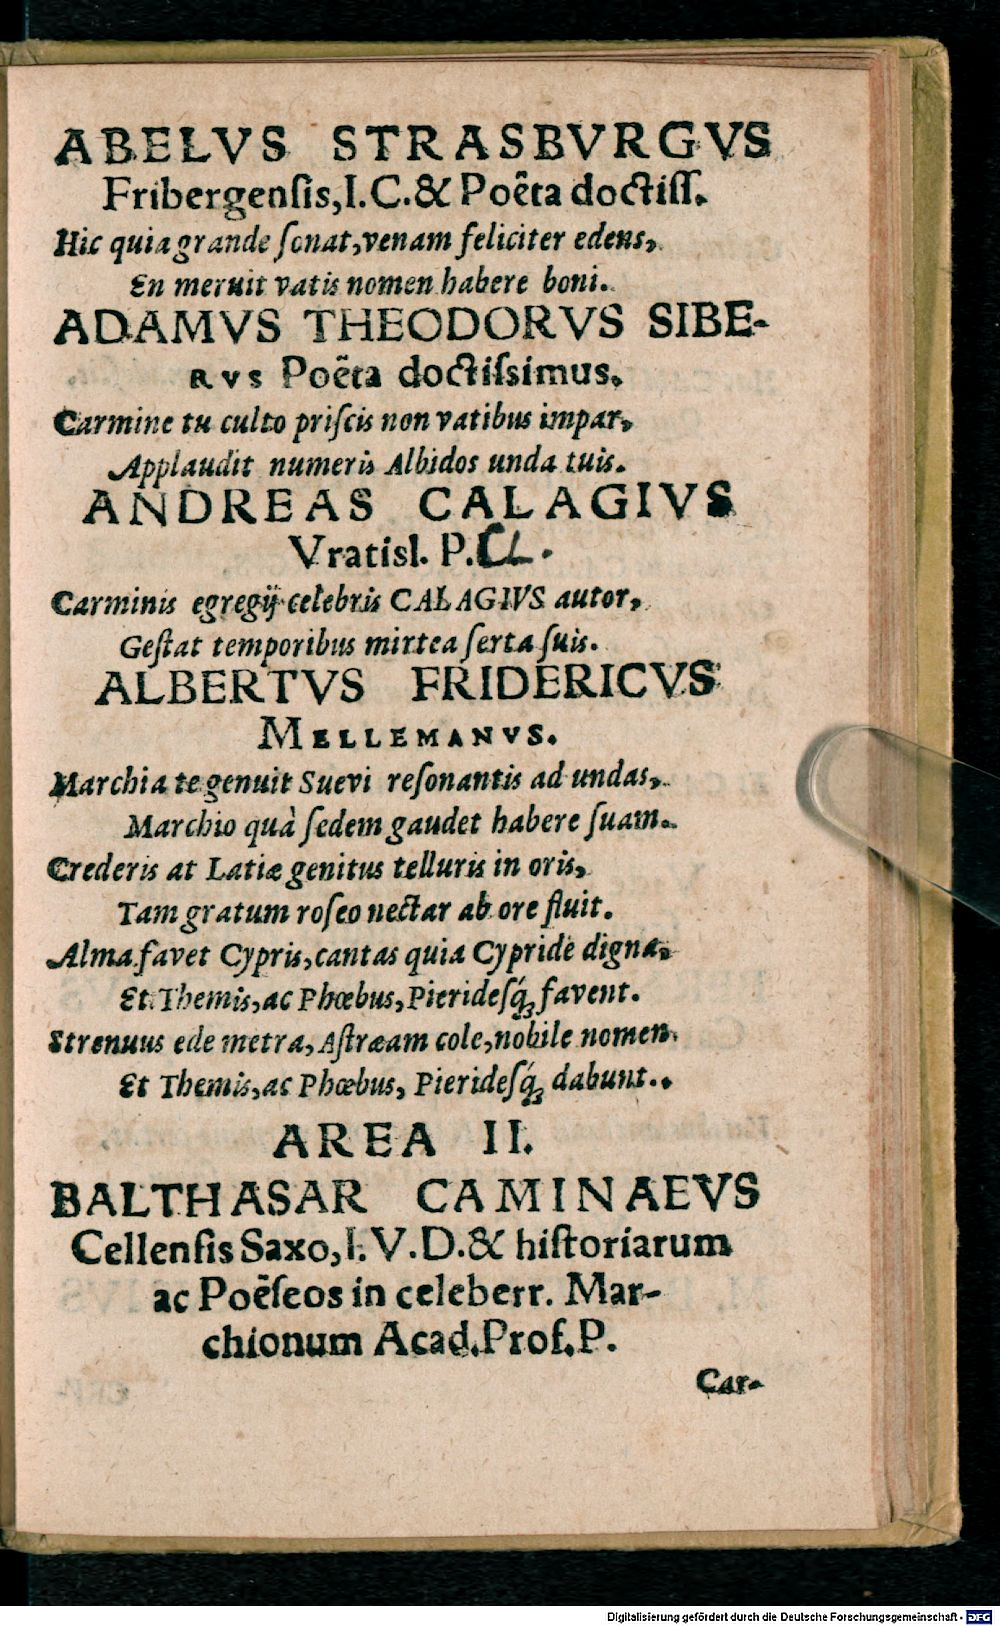 ABELVS STRASBVRGVS
Fribergenſis, I. C. & Poëta doctiſſ.
Hic quia grande ſonat, venam feliciter edens,
En meruit vatis nomen habere boni.
ADAMVS THEODORVS SIBE-
RVS Poëta doctiſsimus.
Carmine tu culto priſcis non vatibus impar,
Applaudit numeris Albidos unda tuis.
ANDREAS CALAGIVS
Vratisl. P. CL.
Carminis egregij celebris CALAGIVS autor,
Geſtat temporibus mirtea ſerta ſuis.
ALBERTVS FRIDERICVS
MELLEMANVS.
Marchia te genuit Suevi reſonantis ad undas,
Marchio quà ſedem gaudet habere ſuam.
Crederis at Latiæ genitus telluris in oris,
Tam gratum roſeo nectar ab ore fluit.
Alma favet Cypris, cantas quia Cypride digna,
Et Themis, ac Phœbus, Pieridesq́ꝫ favent.
Strenuus ede metra, Aſtræam cole, nobile nomen
Et Themis, ac Phœbus, Pierideſq́ꝫ dabunt.
AREA II.
BALTHASAR CAMINAEVS
Cellenſis Saxo, I. V. D. & hiſtoriarum
ac Poëſeos in celeberr. Mar-
chionum Acad. Prof. P.
Car-
Digitalisierung gefördert durch die Deutsche Forschungsgemeinschaft - DFG